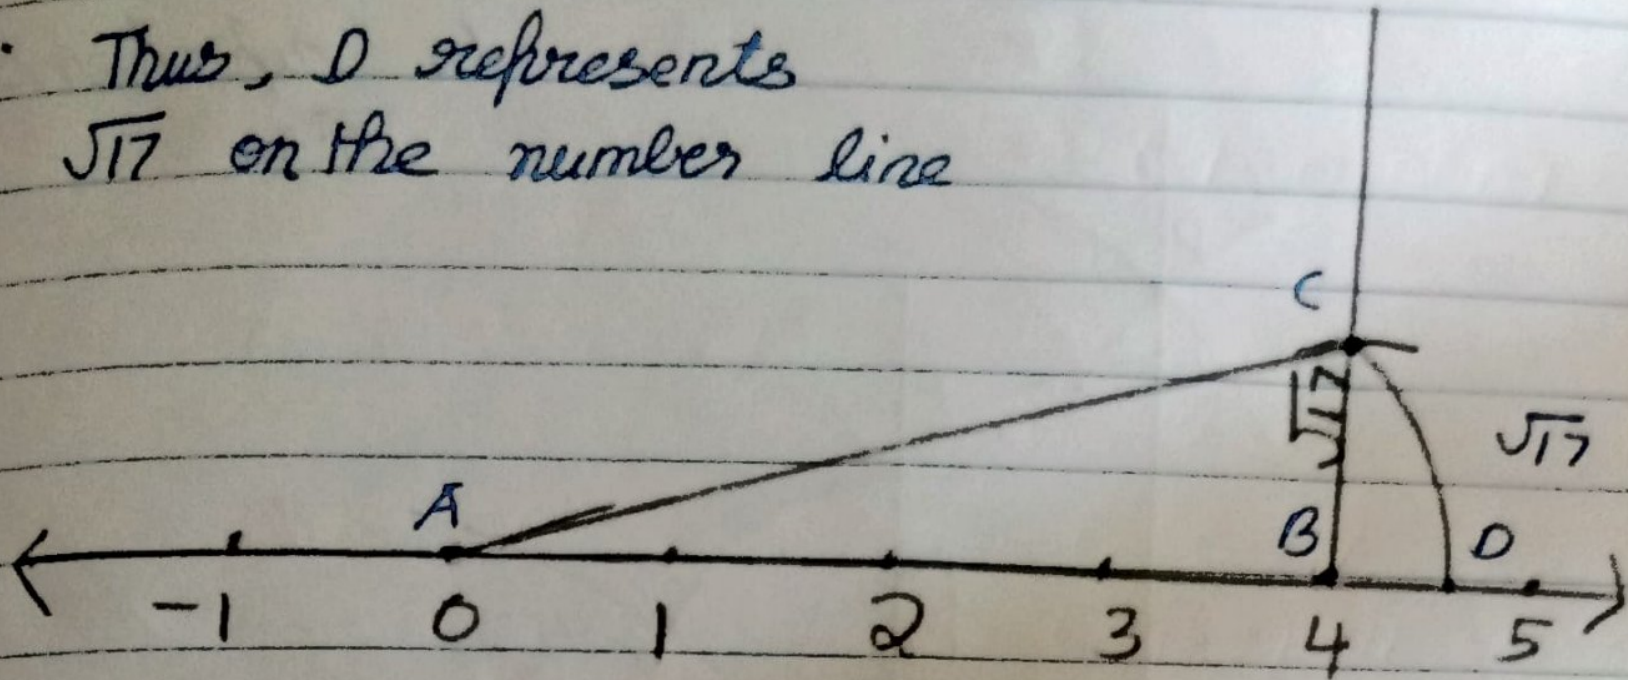 Thus, D represents
√17 on the number line
C
√17
√17
A
B
D
-1 0 1 2 3 4 5